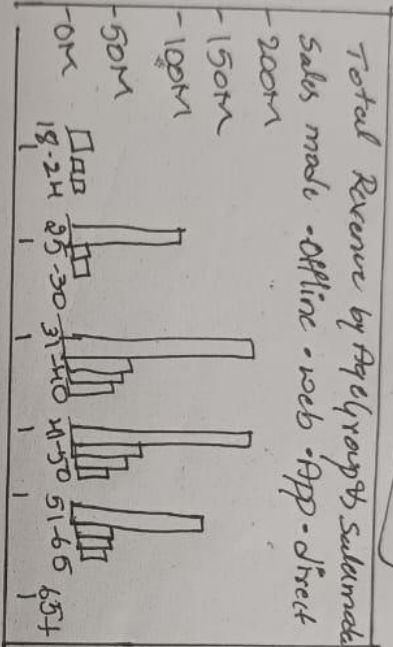 Total Revenue by AgeGroup & Salemode
Sales mode • Offline • web • App • direct
-200M
-150M
-100M
-50M
-0M
18-24 25-30 31-40 41-50 51-65 65+